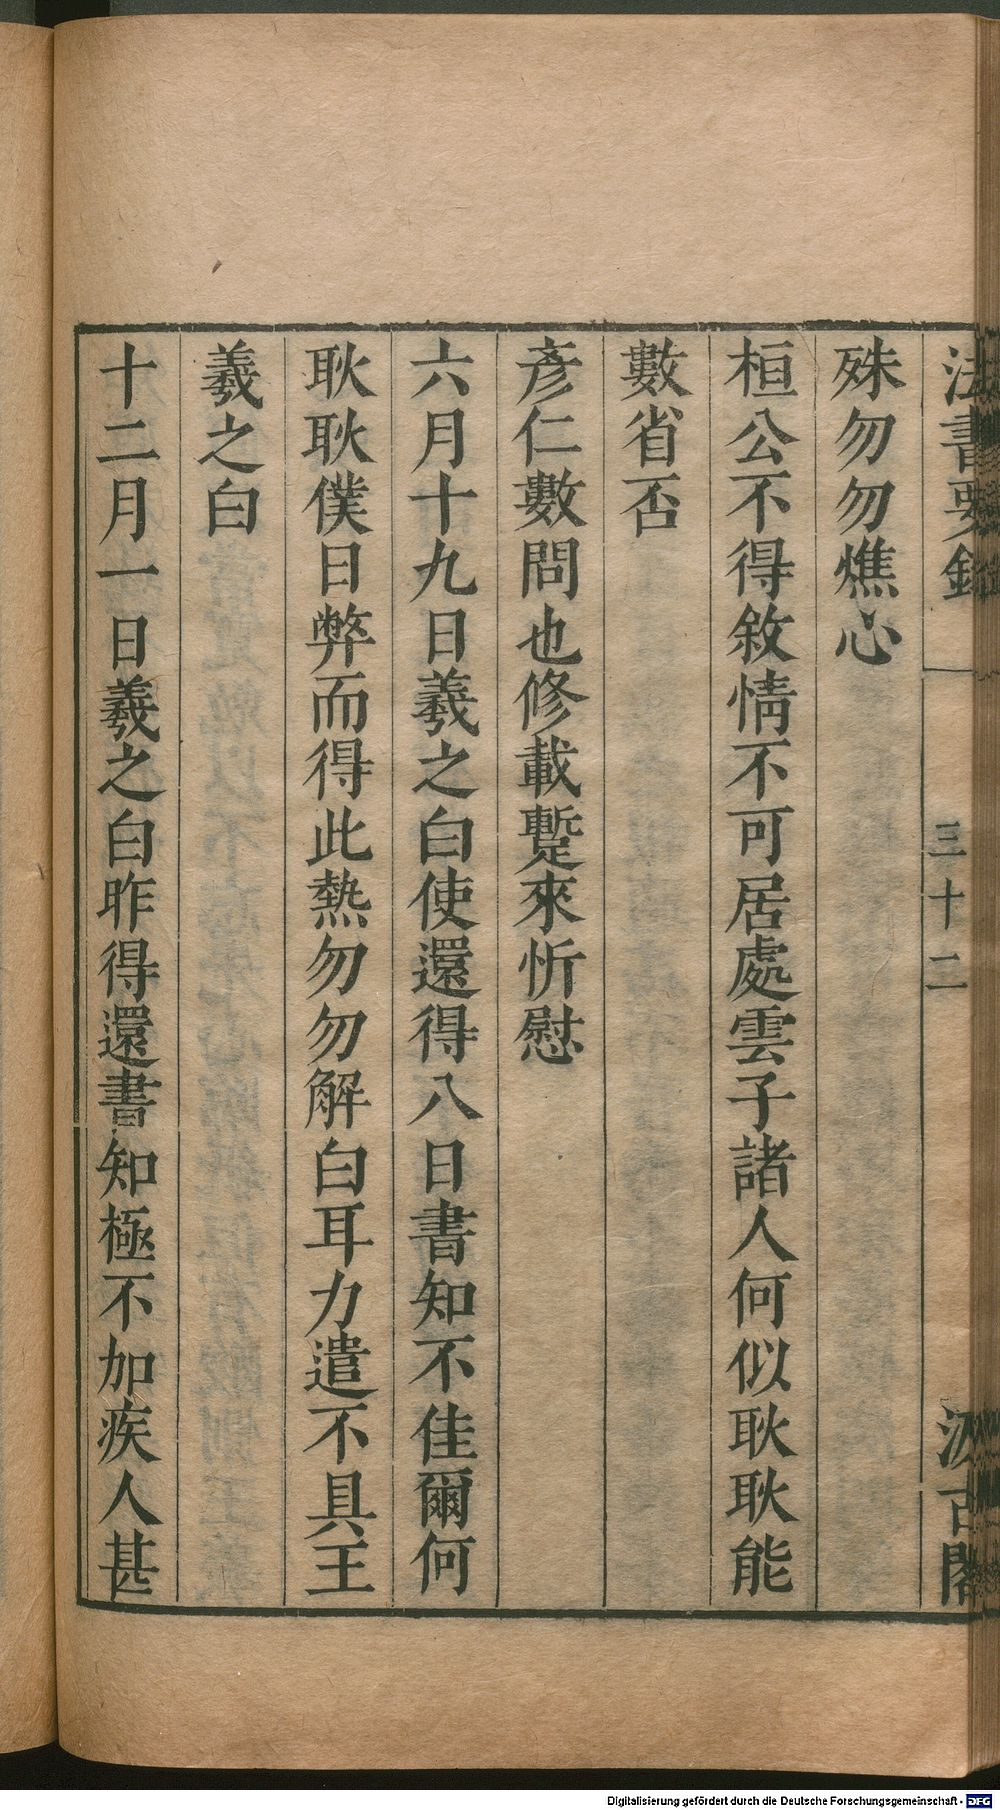 法書要錄
三十二
汲古閣
殊勿勿燋心
桓公不得敘情不可居處雲子諸人何似耿耿能
數省否
彥仁數問也修載蹔來忻慰
六月十九日羲之白使還得八日書知不佳爾何
耿耿僕日弊而得此熱勿勿解白耳力遣不具王
羲之白
十二月一日羲之白昨得還書知極不加疾人甚
Digitalisierung gefördert durch die Deutsche Forschungsgemeinschaft - DFG